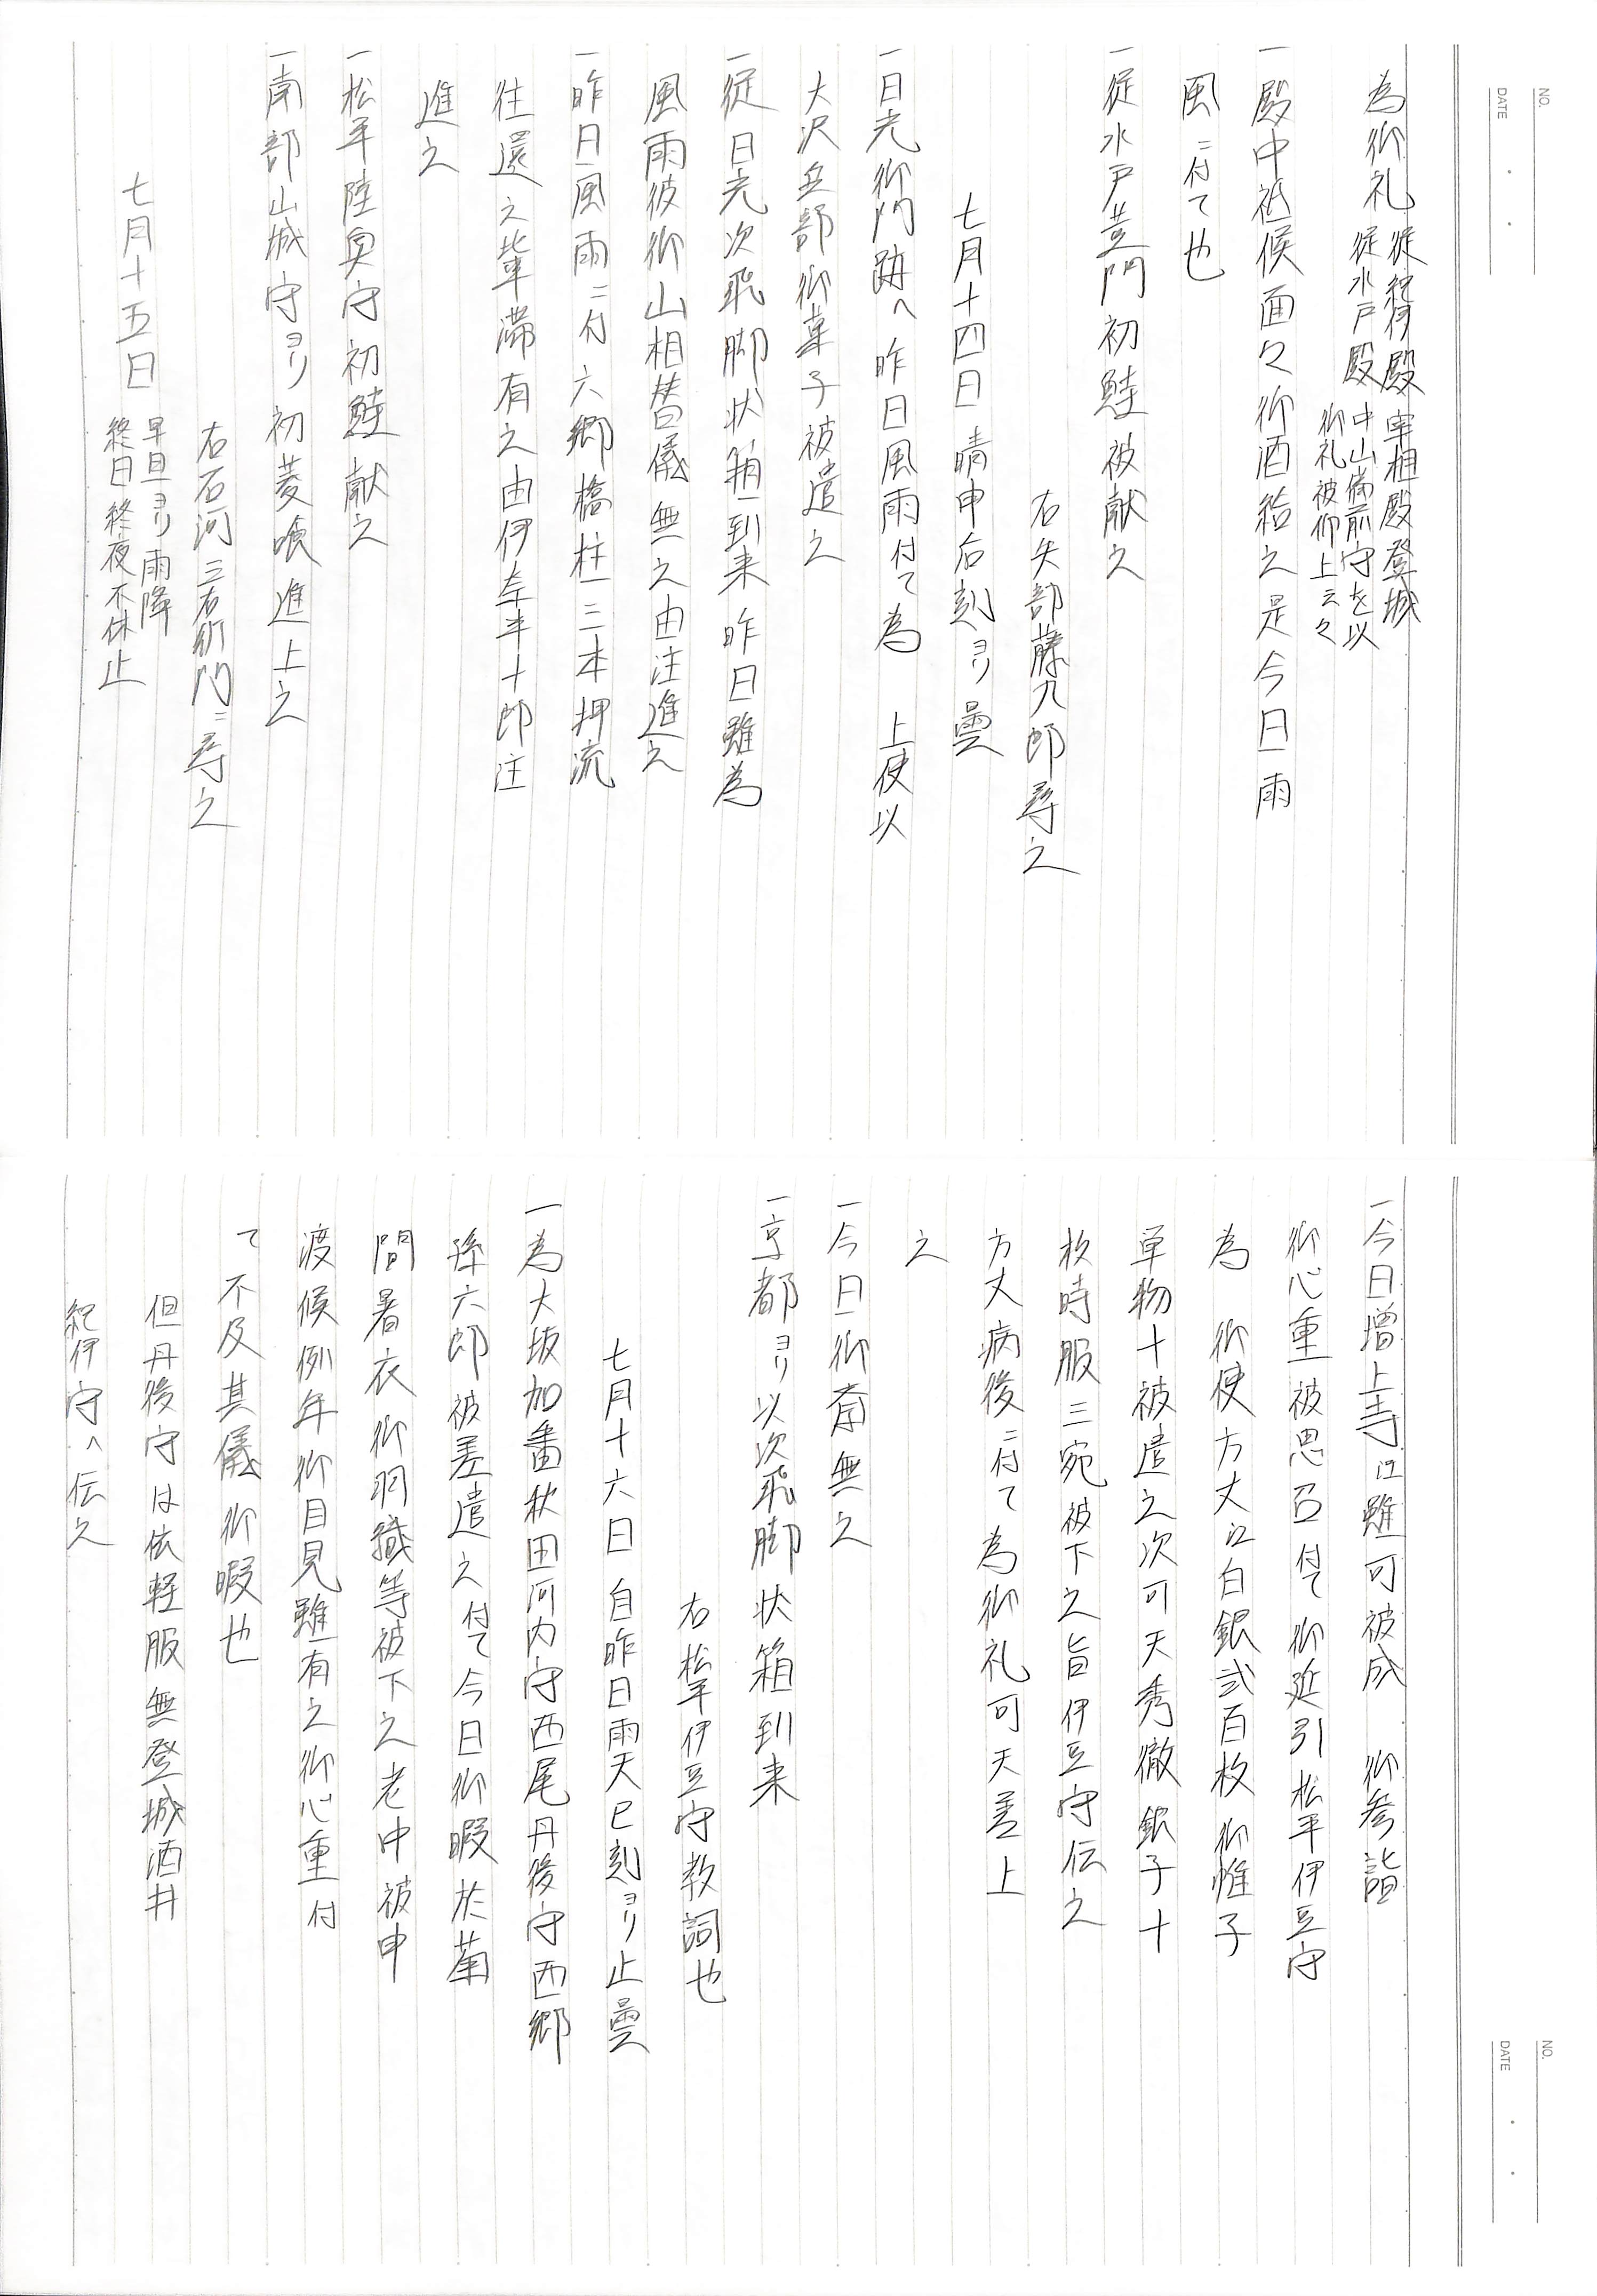 為御礼 従紀伊殿宰相殿登城
従水戸殿中山備前守を以
御礼被仰上云々
一殿中祗候面々御酒給之是今日雨
風ニ付て也
一従水戸黄門初鮭被献之
右矢部藤九郎尋之
七月十四日 晴申后刻ヨリ曇
一日光御門跡へ昨日風雨付て為 上使以
大沢兵部御菓子被遣之
一従日光次飛脚状箱到来昨日雖為
風雨彼御山相替儀無之由注進之
一昨日風雨ニ付六郷橋柱二三本押流
往還之輩滞有之由伊奈半十郎注
進之
一松平陸奥守初鮭献之
一南部山城守ヨリ初菱喰進上之
右石河三右衛門ニ尋之
七月十五日 早旦ヨリ雨降
終日終夜不休止
一今日増上寺江雖可被成 御参詣
御心重被思召付て御延引松平伊豆守
為 御使方丈江白銀弐百枚御帷子
単物十被遣之次可天秀徹銀子十
枚時服三宛被下之旨伊豆守伝之
方丈病後ニ付て為御礼可天差上
之
一今日御斎無之
一京都ヨリ以次飛脚状箱到来
右松平伊豆守教詞也
七月十六日 自昨日雨天巳刻ヨリ止曇
一為大坂加番秋田河内守西尾丹後守西郷
孫六郎被差遣之付て今日御暇於菊
間暑衣御羽織等被下之老中被申
渡候例年御目見雖有之御心重付
て不及其儀御暇也
但丹後守は依軽服無登城酒井
紀伊守へ伝之
NO.
DATE
NO.
DATE